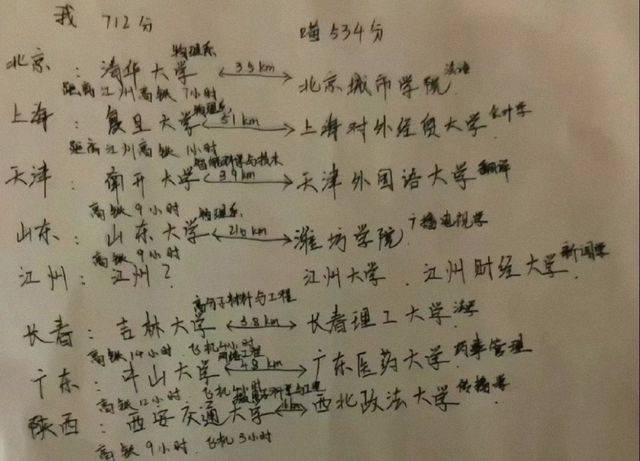 我 712分 嗨534分
物理系
北京：清华大学 35km 北京城市学院 法语
距离江州高铁7小时 物理系
上海：复旦大学 51km 上海对外经贸大学 会计学
距离江州高铁1小时 智能科学与技术
天津：南开大学 39km 天津外国语大学 翻译
高铁9小时 物理系
山东：山东大学 216km 潍坊学院 广播电视学
高铁9小时
江州：江州？ 江州大学．江州财经大学 新闻学
高分子材料与工程
长春：吉林大学 38km 长春理工大学 法学
高铁14小时．飞机4小时 网络工程
广东：中山大学 48km 广东医药大学 药事管理
高铁12小时．飞机 科学与工程
陕西：西安交通大学 km 西北政法大学 传播学
高铁9小时．飞机3小时